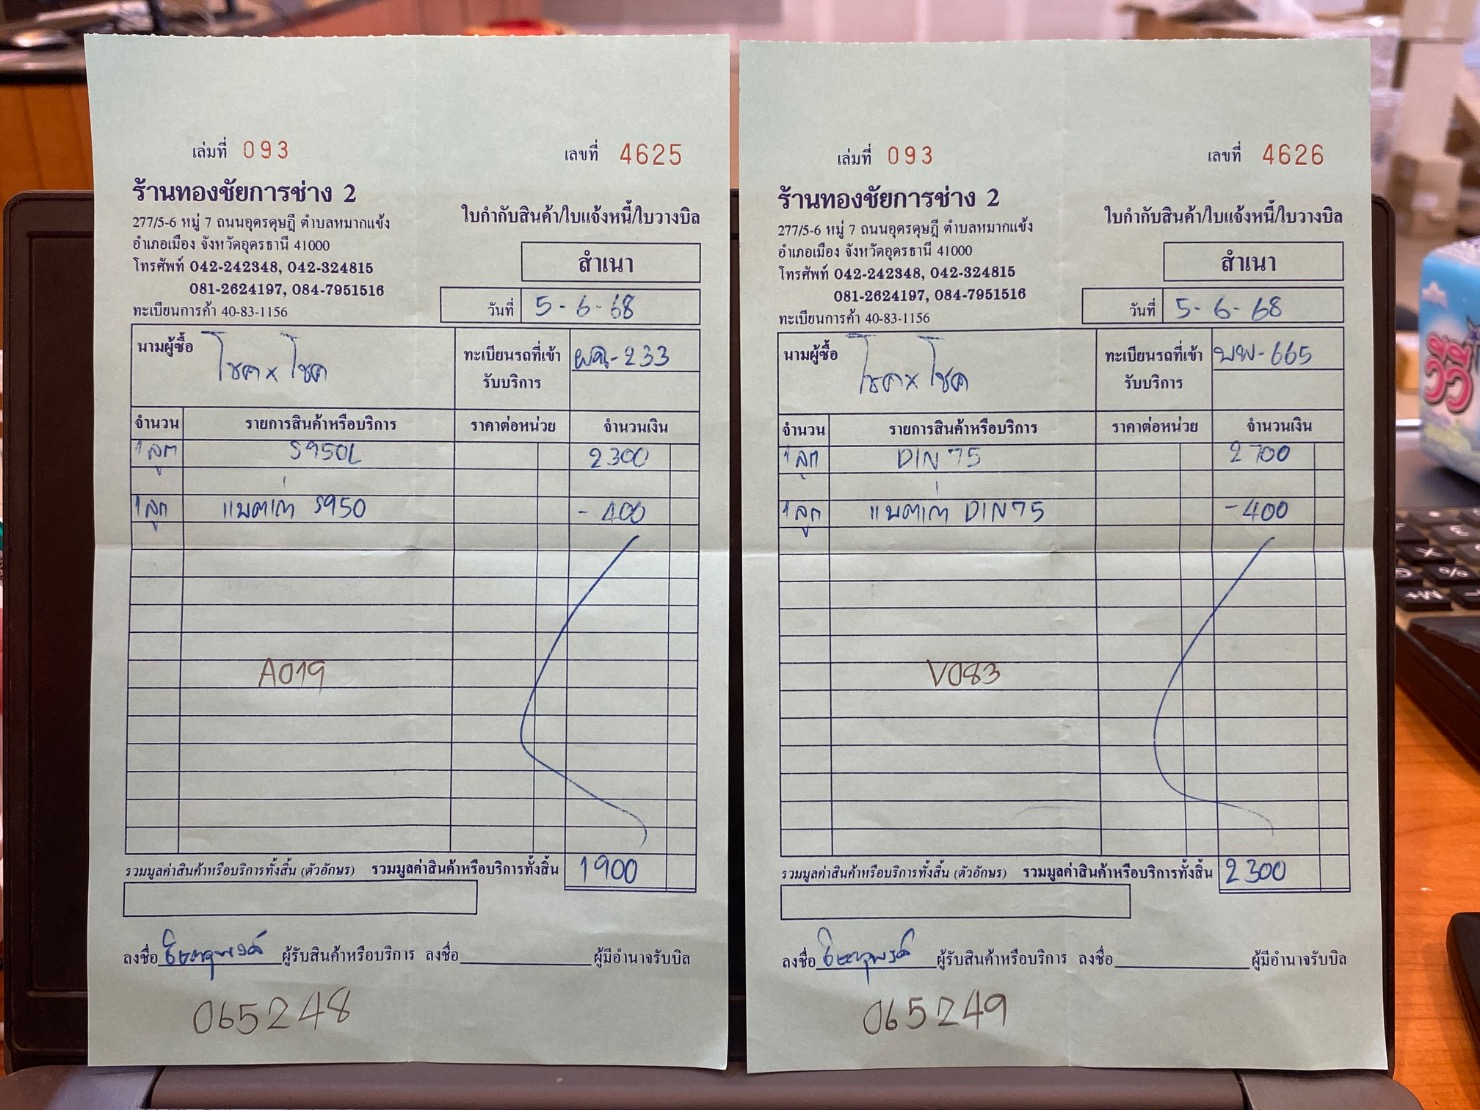 เล่มที่ 093 เลขที่ 4625
ร้านทองชัยการช่าง 2
277/5-6 หมู่ 7 ถนนอุดรดุษฎี ตำบลหมากแข้ง
อำเภอเมือง จังหวัดอุดรธานี 41000
โทรศัพท์ 042-242348, 042-324815
081-2624197, 084-7951516
ทะเบียนการค้า 40-83-1156
ใบกำกับสินค้า/ใบแจ้งหนี้/ใบวางบิล
สำเนา
วันที่ 5-6-68
นามผู้ซื้อ โชค x โชค
ทะเบียนรถที่เข้า -233
รับบริการ
จำนวน รายการสินค้าหรือบริการ ราคาต่อหน่วย จำนวนเงิน
1 ลูก S950L 2300
1 ลูก แบตเก่า S950 -400
A019
รวมมูลค่าสินค้าหรือบริการทั้งสิ้น (ตัวอักษร) รวมมูลค่าสินค้าหรือบริการทั้งสิ้น 1900
ลงชื่อ ผู้รับสินค้าหรือบริการ ลงชื่อ ผู้มีอำนาจรับบิล
065248
เล่มที่ 093 เลขที่ 4626
ร้านทองชัยการช่าง 2
277/5-6 หมู่ 7 ถนนอุดรดุษฎี ตำบลหมากแข้ง
อำเภอเมือง จังหวัดอุดรธานี 41000
โทรศัพท์ 042-242348, 042-324815
081-2624197, 084-7951516
ทะเบียนการค้า 40-83-1156
ใบกำกับสินค้า/ใบแจ้งหนี้/ใบวางบิล
สำเนา
วันที่ 5-6-68
นามผู้ซื้อ โชค x โชค
ทะเบียนรถที่เข้า พพ-665
รับบริการ
จำนวน รายการสินค้าหรือบริการ ราคาต่อหน่วย จำนวนเงิน
1 ลูก DIN 75 2700
1 ลูก แบตเก่า DIN 75 -400
V083
รวมมูลค่าสินค้าหรือบริการทั้งสิ้น (ตัวอักษร) รวมมูลค่าสินค้าหรือบริการทั้งสิ้น 2300
ลงชื่อ ผู้รับสินค้าหรือบริการ ลงชื่อ ผู้มีอำนาจรับบิล
065249
วีวี่